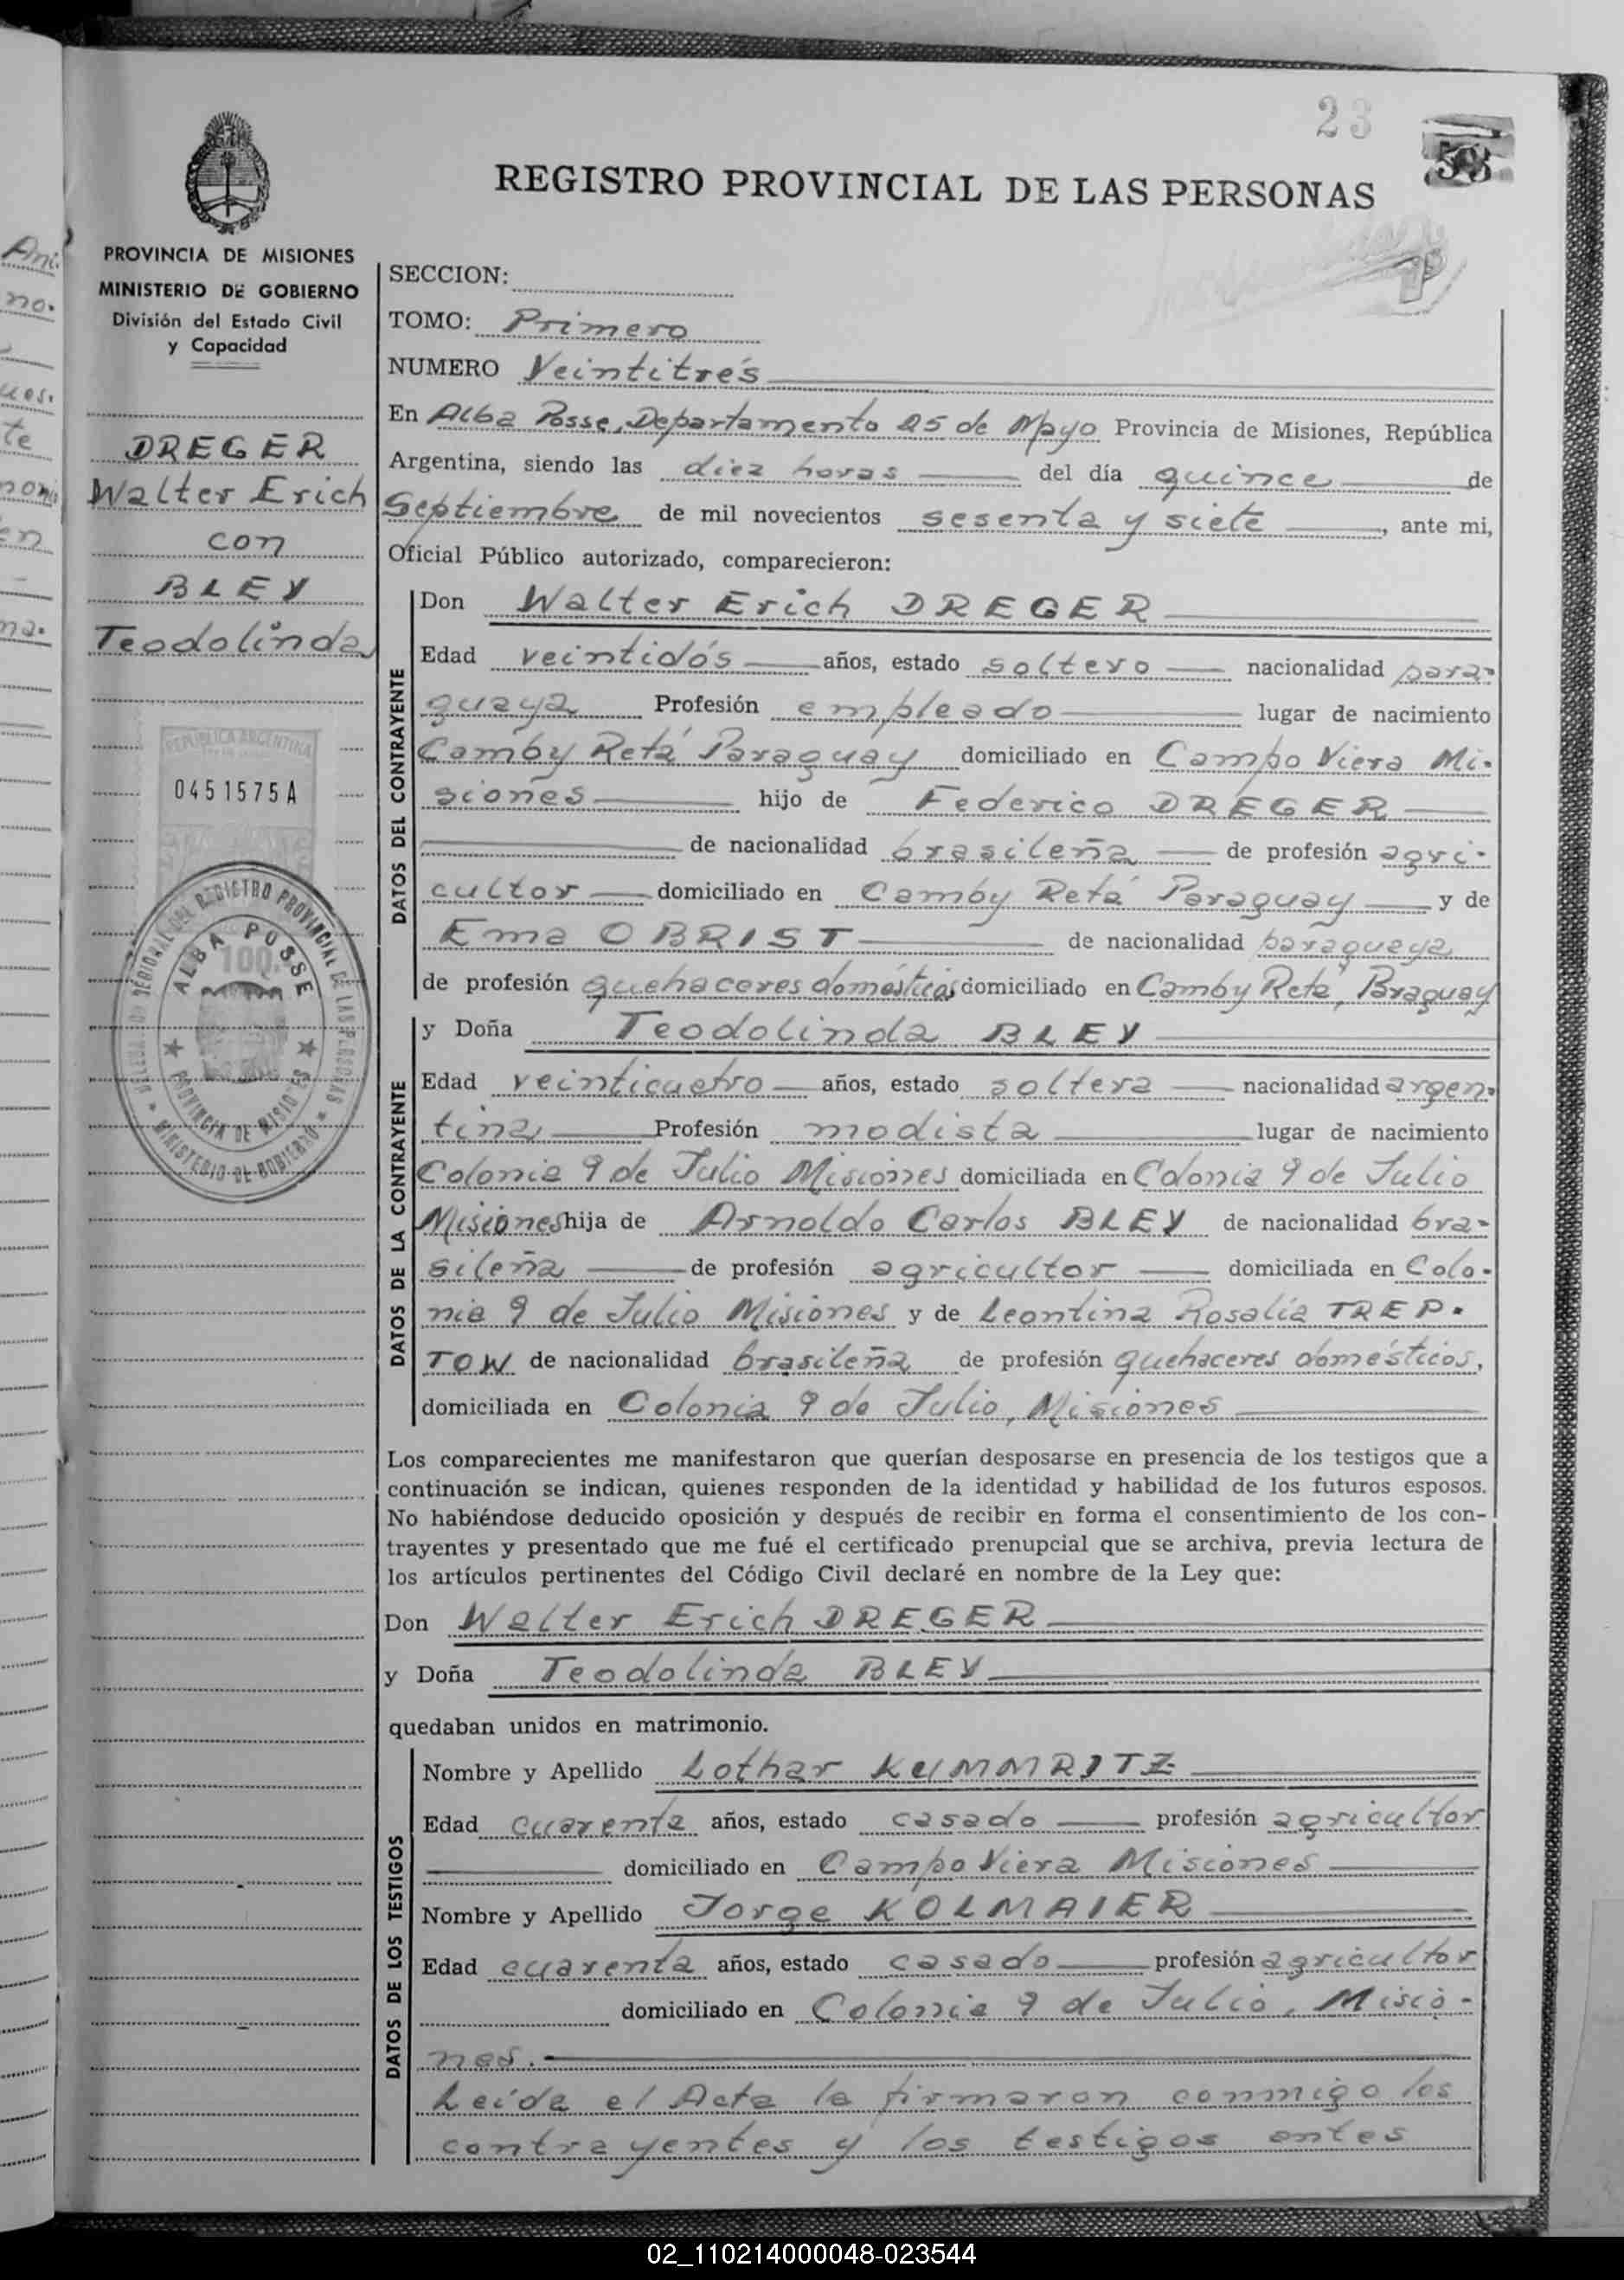 23
REGISTRO PROVINCIAL DE LAS PERSONAS
PROVINCIA DE MISIONES
MINISTERIO DE GOBIERNO
División del Estado Civil
y Capacidad
DREGER
Walter Erich
con
BLEY
Teodolinda
REPUBLICA ARGENTINA
0451575A
100
ALBA POSSE
PROVINCIA DE MISIONES
MINISTERIO DE GOBIERNO
SECCION:
TOMO: Primero
NUMERO Veintitrés
En Alba Posse, Departamento 25 de Mayo Provincia de Misiones, República
Argentina, siendo las diez horas del día quince de
Septiembre de mil novecientos sesenta y siete, ante mi,
Oficial Público autorizado, comparecieron:
DATOS DEL CONTRAYENTE
Don Walter Erich DREGER
Edad veintidós años, estado soltero nacionalidad para-
guaya Profesión empleado lugar de nacimiento
Camby Retá Paraguay domiciliado en Campo Viera Mi-
siones hijo de Federico DREGER
de nacionalidad brasileña de profesión agri-
cultor domiciliado en Camby Retá Paraguay y de
Ema OBRIST de nacionalidad paraguaya
de profesión quehaceres domésticos domiciliado en Camby Retá, Paraguay
DATOS DE LA CONTRAYENTE
y Doña Teodolinda BLEY
Edad veinticuatro años, estado soltera nacionalidad argen-
tina Profesión modista lugar de nacimiento
Colonia 9 de Julio Misiones domiciliada en Colonia 9 de Julio
Misiones hija de Arnoldo Carlos BLEY de nacionalidad bra-
sileña de profesión agricultor domiciliada en Colo-
nia 9 de Julio Misiones y de Leontina Rosalía TREP-
TOW de nacionalidad brasileña de profesión quehaceres domésticos,
domiciliada en Colonia 9 de Julio, Misiones
Los comparecientes me manifestaron que querían desposarse en presencia de los testigos que a
continuación se indican, quienes responden de la identidad y habilidad de los futuros esposos.
No habiéndose deducido oposición y después de recibir en forma el consentimiento de los con-
trayentes y presentado que me fué el certificado prenupcial que se archiva, previa lectura de
los artículos pertinentes del Código Civil declaré en nombre de la Ley que:
Don Walter Erich DREGER
y Doña Teodolinda BLEY
quedaban unidos en matrimonio.
DATOS DE LOS TESTIGOS
Nombre y Apellido Lothar KUMMRITZ
Edad cuarenta años, estado casado profesión agricultor
domiciliado en Campo Viera Misiones
Nombre y Apellido Jorge KOLMAIER
Edad cuarenta años, estado casado profesión agricultor
domiciliado en Colonia 9 de Julio, Misio-
nes.
Leída el Acta la firmaron conmigo los
contrayentes y los testigos antes
02_110214000048-023544